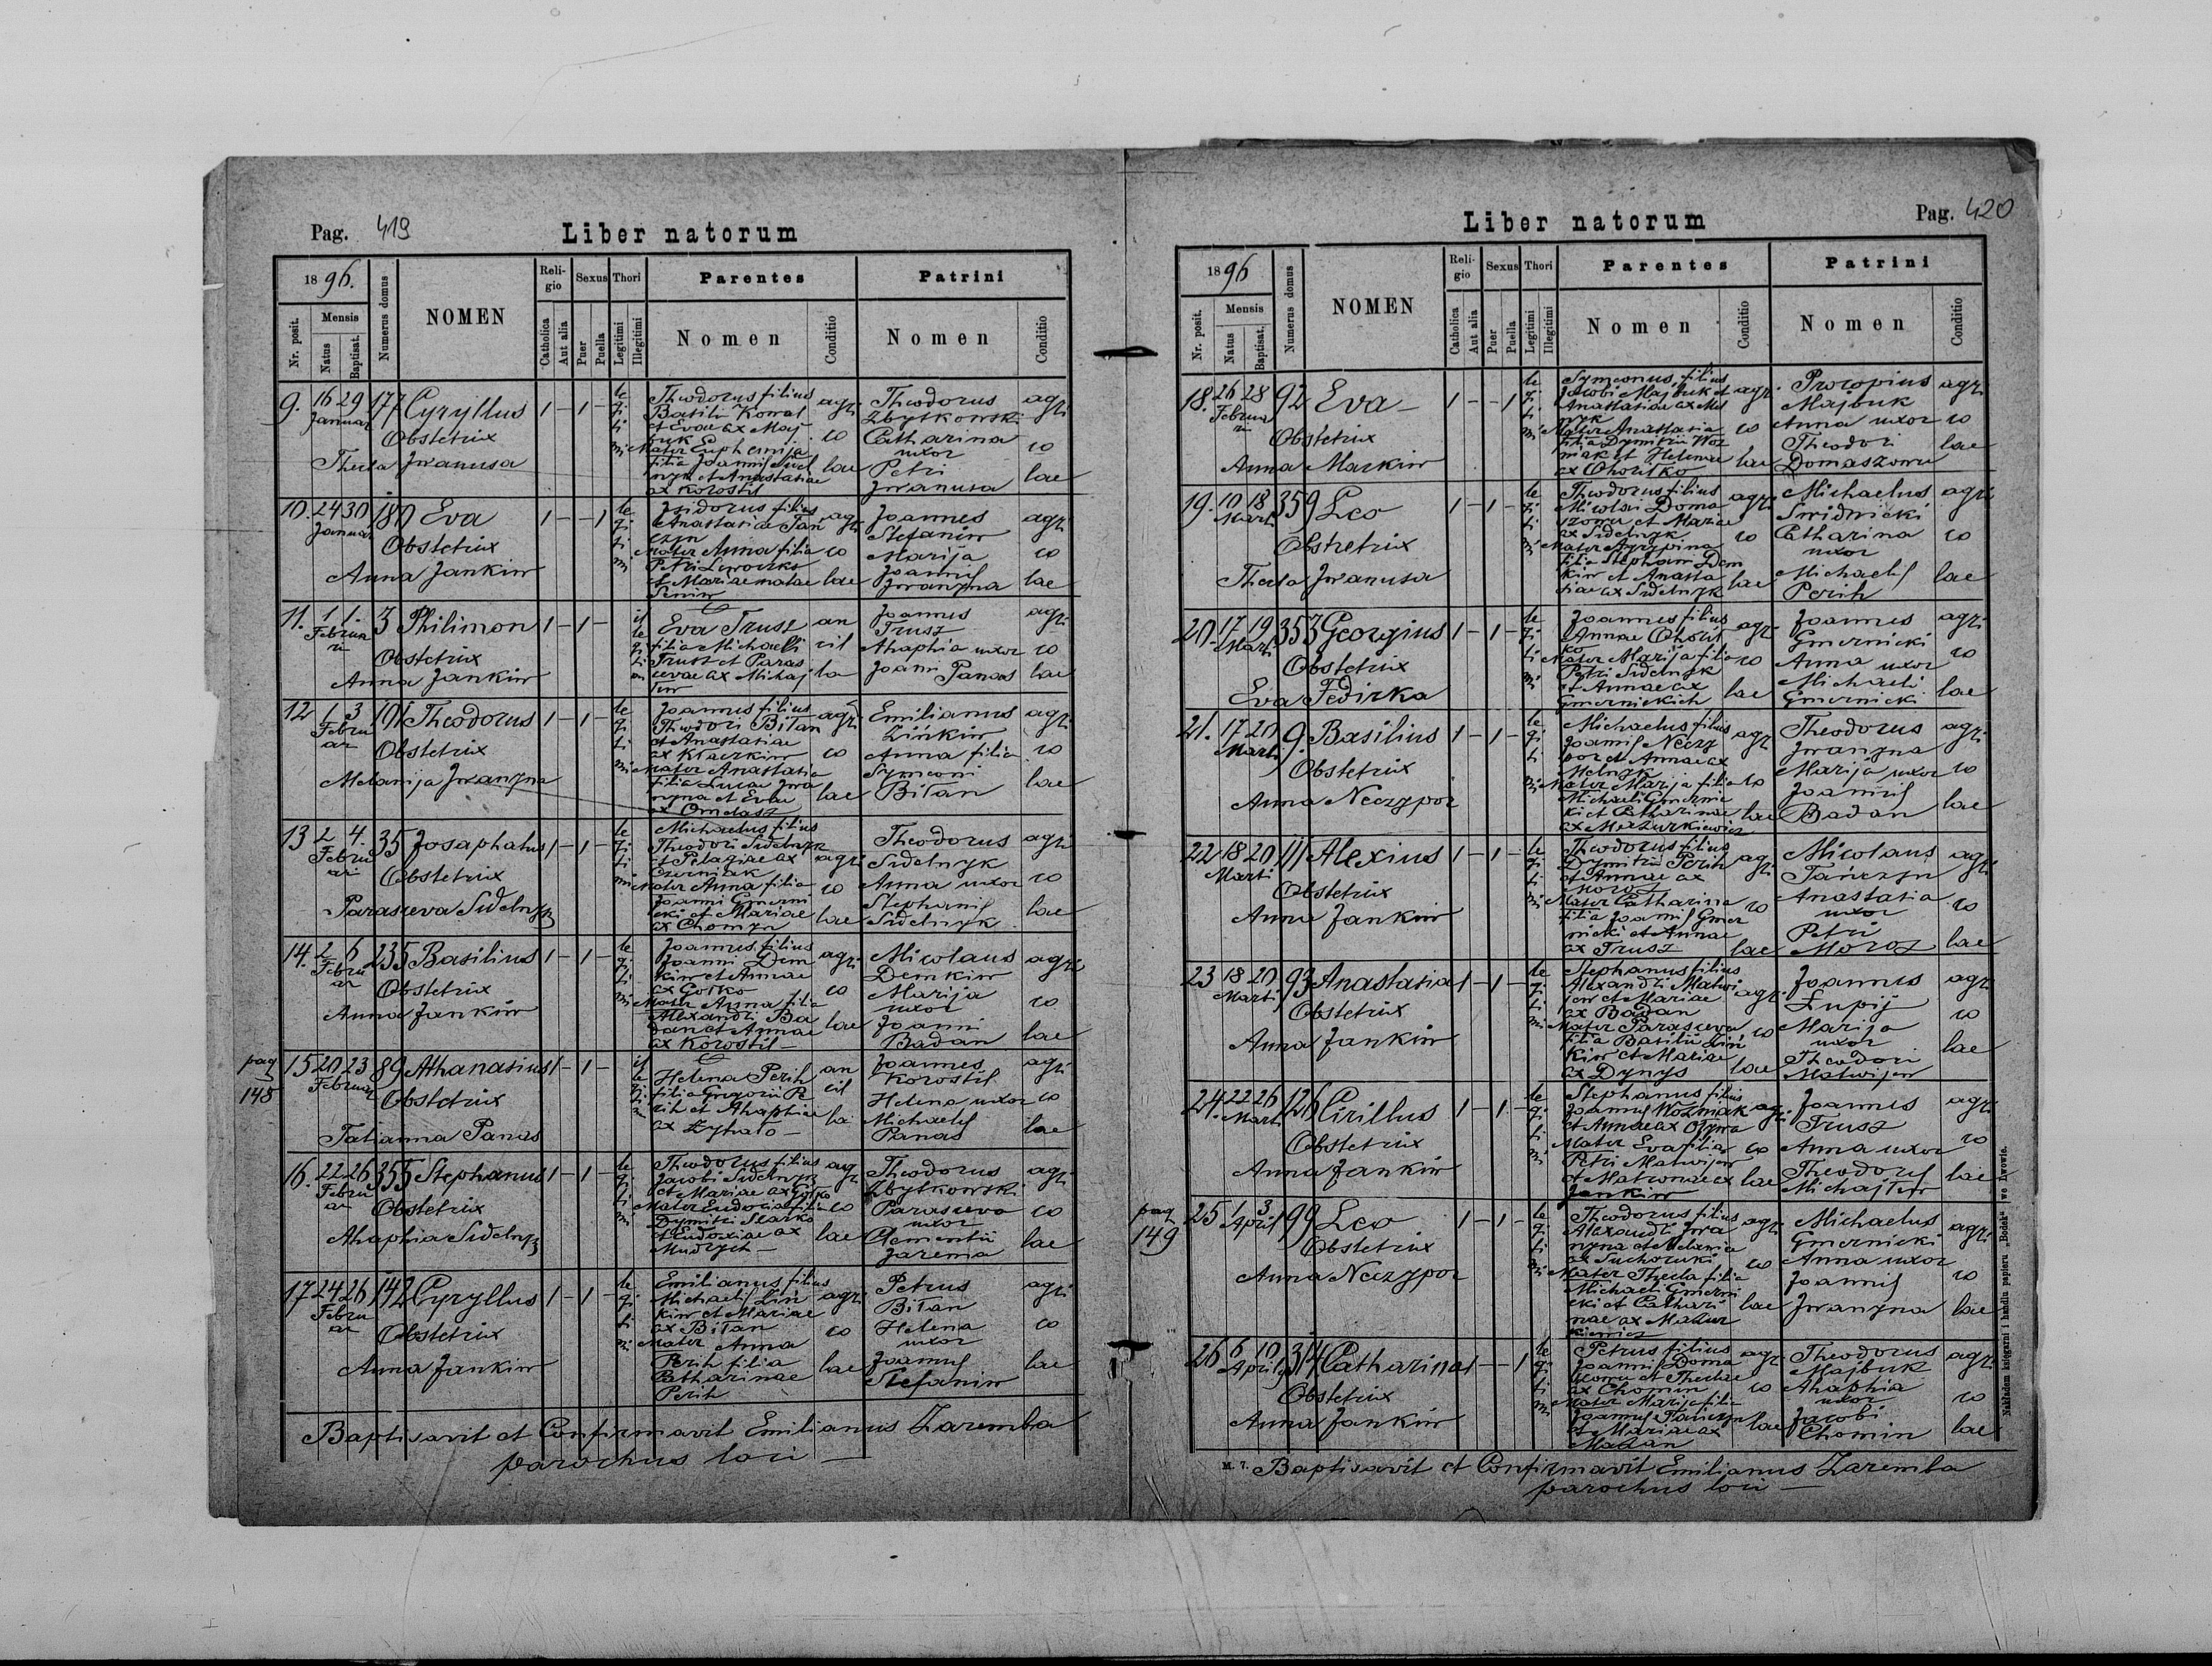 Pag. 419
Liber natorum
1896.
Nr. posit.
Mensis
Natus
Baptisat.
Numerus domus
NOMEN
Religio
Catholica
Aut alia
Sexus
Puer
Puella
Thori
Legitimi
Illegitimi
Parentes
Nomen
Conditio
Patrini
Nomen
Conditio
9. 16 29 177 Cyryllus 1 - 1 -
Januar
Obstetrix
Thecla Jwanusa
legitimi
Theodorus filius
Basilii Kowal
et Evae ax Maj
buk
Mater Euphemija
filia Joannis Sidel
nyk et Anastasiae
ax Korostil
agricolae
Theodorus
Zbytkowski
Catharina
uxor
Petri
Jwanusa
agricolae
10. 24 30 180 Eva 1 - - 1
Januar
Obstetrix
Anna Jankiw
legitimi
Isidorus filius
Anastasiae Tań
czyn
Mater Anna filia
Petri
et Mariae natae
Seniw
agricolae
Joannes
Stefaniw
Marija
Joannis
Jwanyna
agricolae
11. 1 1. 3 Philimon 1 - 1 -
Februarii
Obstetrix
Anna Jankiw
Eva Trusz
filia Michaelis
Trusz et Paras
cevae ax Michaj
low
ancilla
Joannes
Trusz
Ahaphia uxor
Joanni Panas
agricolae
12 1 3 191 Theodorus 1 - 1 -
Februar
Obstetrix
Melanija Jwanyna
legitimi
Joannes filius
Theodori Bilan
et Anastasiae
ax Klaczkiw
Mater Anastasia
filia Lucae Jwa
nyna et Evae
ax Omelasz
agricolae
Emilianus
Zinkiw
Anna filia
Symeoni
Bilan
agricolae
13 2 4. 35 Josaphatus 1 - 1 -
Februar
Obstetrix
Parasceva Sidelnyk
legitimi
Michaelus filius
Theodori Sidelnyk
et Pelagiae ax
Czerniak
Mater Anna filia
Joanni Gmerni
cki et Mariae
ax Chomyn
agricolae
Theodorus
Sidelnyk
Anna uxor
Stephanis
Sidelnyk
agricolae
14. 2 6 235 Basilius 1 - 1 -
Februar
Obstetrix
Anna Jankiw
legitimi
Joannes filius
Joanni Dem
kiw et Annae
ax Gorko
Mater Anna filia
Alexandri Ba
dan et Annae
ax Korostil -
agricolae
Micolaus
Demkiw
Marija
uxor
Joanni
Badan
agricolae
pag
148
15 20 23 89 Athanasius 1 - 1 -
Februar
Obstetrix
Tatianna Panas
Helena Perih
filia Gregorii Pe
rih et Ahaphiae
ancilla
Joannes
Korostil
Helena uxor
Michaelis
Panas
agricolae
16. 22 26 355 Stephanus 1 - 1 -
Februar
Obstetrix
Ahaphia Sidelnyk
legitimi
Theodorus filius
Jacobi Sidelnyk
et Mariae ax
Mater Eudocia filia
Dymitri
et Eudoxiae ax
Mudrych -
agricolae
Theodorus
Zbytkowski
Parasceva
uxor
Clementii
Jarema
agricolae
17 24 26 142 Cyryllus 1 - 1 -
Februar
Obstetrix
Anna Jankiw
legitimi
Emilianus filius
Michaelis Zin
kiw et Mariae
ax Bilan
Mater Anna
Perih filia
Catharinae
Perih
agricolae
Petrus
Bilan
Helena
uxor
Joannis
Stefaniw
agricolae
Baptisavit et Confirmavit Emilianus Zaremba
parochus loci -
Pag. 420
Liber natorum
1896
Nr. posit.
Mensis
Natus
Baptisat.
Numerus domus
NOMEN
Religio
Catholica
Aut alia
Sexus
Puer
Puella
Thori
Legitimi
Illegitimi
Parentes
Nomen
Conditio
Patrini
Nomen
Conditio
18. 26 28 92 Eva - 1 - - 1
Februarii
Obstetrix
Anna Markiw
legitimi
Symeonus filius
Jacobi Majbuk et
Anastasiae ax Mel
nyk
Mater Anastasia
filia Dymitrii Woz
niak et Helenae
ax Choritko
agricolae
Procopius
Majbuk
Anna uxor
Theodori
Domaszowu
agricolae
19. 10 18 359 Leo 1 - 1 -
Marti
Obstretrix
Thecla Jwanusa
legitimi
Theodorus filius
Micolai Doma
szowu et Mariae
ax Sidelnyk
Mater Agrypina
filia Stephani Dem
kiw et Anasta
siae ax Sidelnyk
agricolae
Michaelus
Swidnicki
Catharina
uxor
Michaelis
Perih
agricolae
20. 17 19 353 Georgius 1 - 1 -
Marti
Obstetrix
Eva Fedirka
legitimi
Joannes filius
Annae Chorit
ko
Mater Marija filia
Petri Sidelnyk
et Annae ax
Gmernickich
agricolae
Joannes
Gmernicki
Anna uxor
Michaeli
Gmernicki
agricolae
21. 17 20 9. Basilius 1 - 1 -
Marti
Obstetrix
Anna Neczypor
legitimi
Michaelus filius
Joannis Neczy
por et Annae ax
Melnyk
Mater Marija filia
Michaeli Gmerni
cki et Catharinae
ax Mazurkiewicz
agricolae
Theodorus
Jwanyna
Marija uxor
Joannis
Badan
agricolae
22 18 20 111 Alexius 1 - 1 -
Marti
Obstetrix
Anna Jankiw
legitimi
Theodorus filius
Dymitrii Perih
et Annae ax
Moroz
Mater Catharina
filia Joannis Gmer
nicki et Annae
ax Trusz
agricolae
Micolaus
Tańczyn
Anastasia
uxor
Petri
Moroz
agricolae
23 18 20 93 Anastasia 1 - 1 -
Marti
Obstetrix
Anna Jankiw
legitimi
Stephanus filius
Alexandri Matwi
jew et Mariae
ax Badan
Mater Parasceva
filia Basilii Zin
kiw et Mariae
ax Dynys
agricolae
Joannes
Lupij
Marija
uxor
Theodori
Matwijew
agricolae
24. 22 26 126 Cirillus 1 - 1 -
Marti
Obstetrix
Anna Jankiw
legitimi
Stephanus filius
Joannis Wozniak
et Annae ax
Mater Eva filia
Petri Matwijew
et Matronae ax
Jankiw
agricolae
Joannes
Trusz
Anna uxor
Theodors
Michajlow
agricolae
pag
149
25 1 3 99 Leo 1 - 1 -
April
Obstetrix
Anna Neczypor
legitimi
Theodorus filius
Alexandri Jwa
nyna et Melaniae
ax Suchorucki
Mater Thecla filia
Michaeli Gmerni
cki et Cathari
nae ax Mazur
kiewicz
agricolae
Michaelus
Gmernicki
Anna uxor
Joannis
Jwanyna
agricolae
26 6 10 314 Catharina 1 - - 1
April
Obstetrix
Anna Jankiw
legitimi
Petrus filius
Joannis Doma
szowu et Theclae
ax Chomin
Mater Marija filia
Joannis Tańczyn
et Mariae ax
Mazan
agricolae
Theodorus
Majbuk
Ahaphia
uxor
Jacobi
Chomin
agricolae
M. 7. Baptisavit et Confirmavit Emilianus Zaremba
parochus loci -
Nakładem księgarni i handlu papieru „Bodek” we Lwowie.